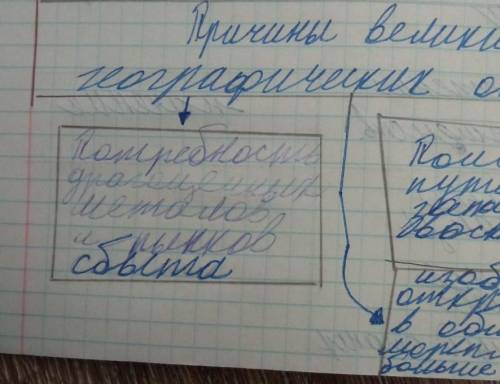 Причины велики
географических о
Потребность
драгоценных
металов
и рынков
сбыта
Пои
пут
запа
вос
изоб
откр
в об
мореп
больше